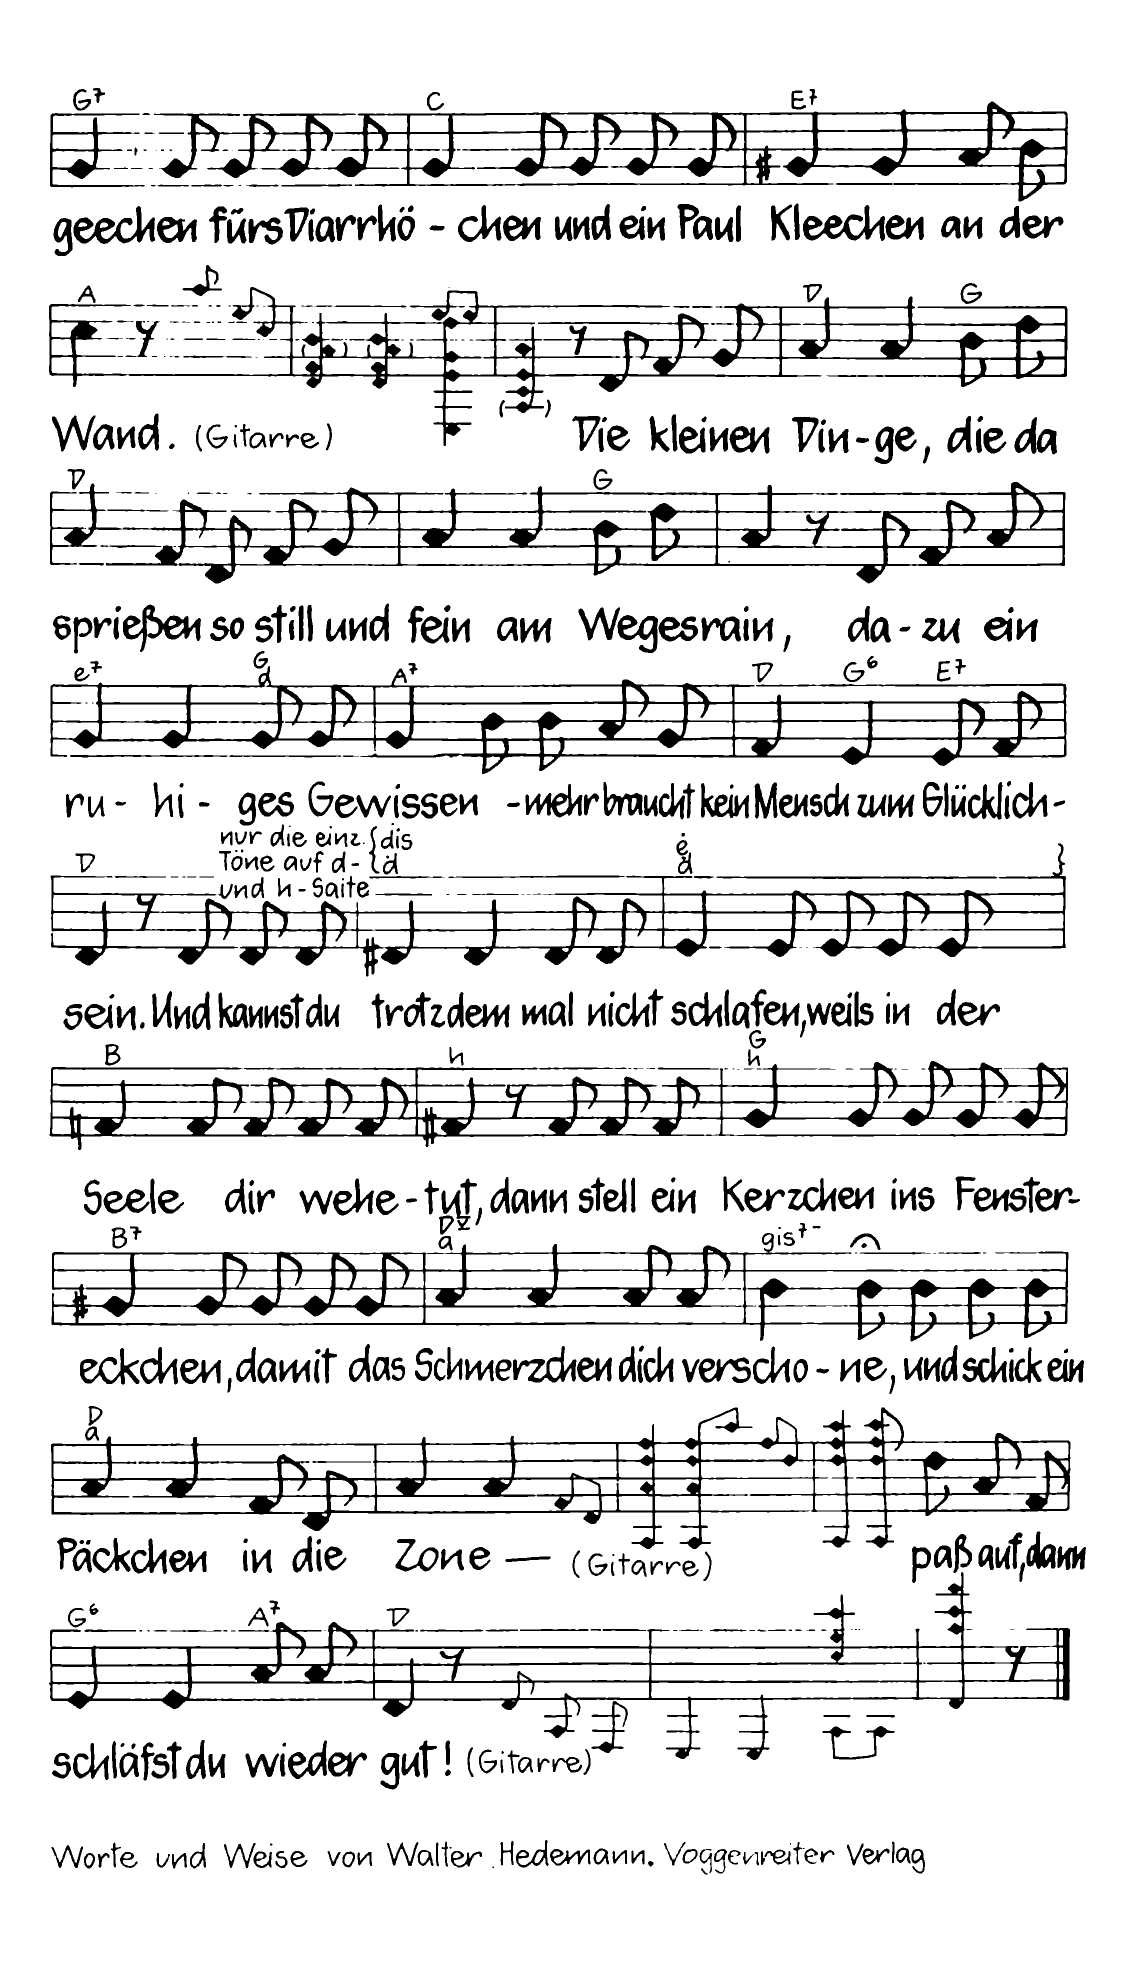 G7 C E7
geechen fürs Diarrhö - chen und ein Paul Kleechen an der
A D G
Wand. (Gitarre) Die kleinen Din-ge, die da
D G
sprießen so still und fein am Wegesrain, da-zu ein
e7 G d A7 D G6 E7
ru- hi- ges Gewissen -mehr braucht kein Mensch zum Glücklich-
nur die einz. { dis
D Töne auf d- { d ė d }
und h-Saite
sein. Und kannst du trotzdem mal nicht schlafen, weils in der
B h G h
Seele dir wehe-tut, dann stell ein Kerzchen ins Fenster-
B7 DV a gis7-
eckchen, damit das Schmerzchen dich verscho-ne, und schick ein
D a
Päckchen in die Zone — (Gitarre) paß auf, dann
G6 A7 D
schläfst du wieder gut! (Gitarre)
Worte und Weise von Walter Hedemann. Voggenreiter Verlag